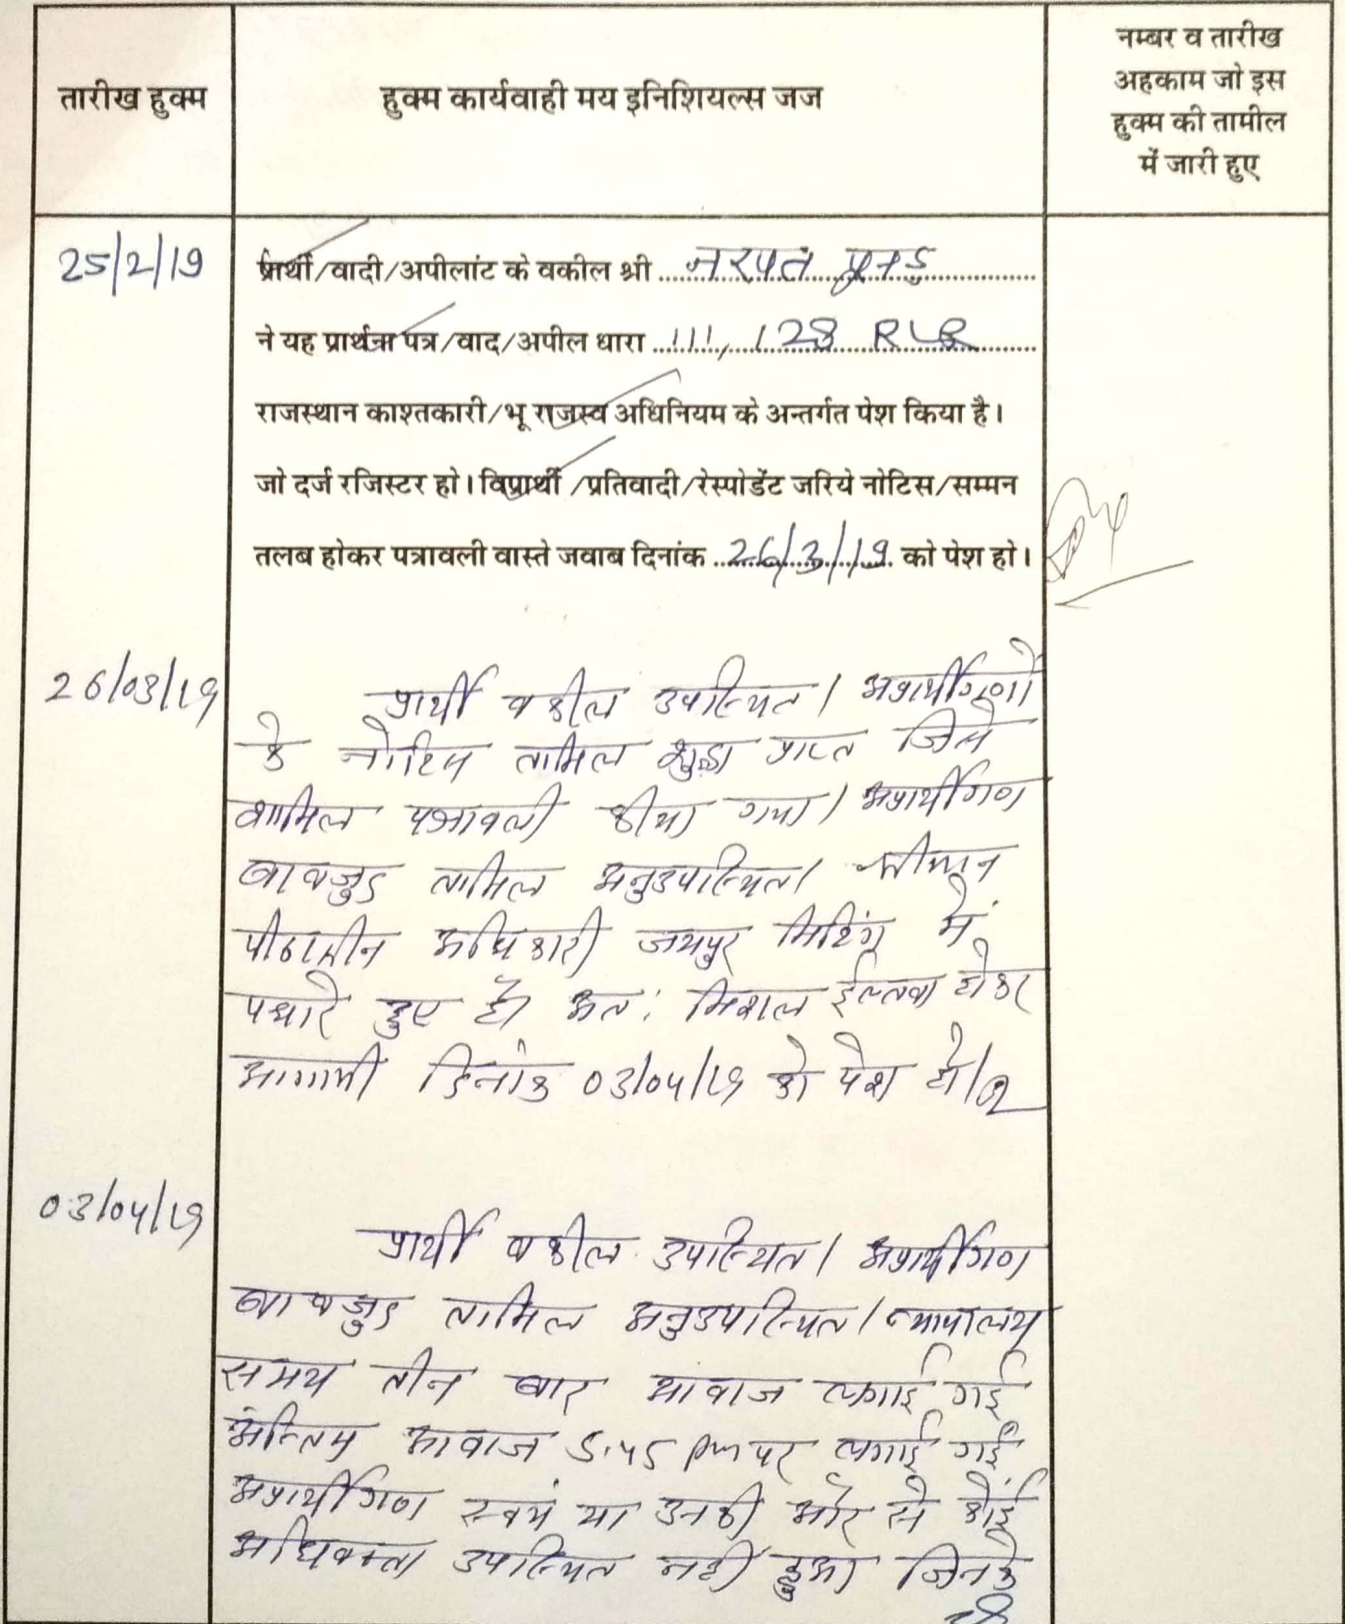 तारीख हुक्म
हुक्म कार्यवाही मय इनिशियल्स जज
नम्बर व तारीख
अहकाम जो इस
हुक्म की तामील
में जारी हुए
25/2/19
प्रार्थी/वादी/अपीलांट के वकील श्री नरपत
ने यह प्रार्थना पत्र/वाद/अपील धारा 111, 128 RLR
राजस्थान काश्तकारी/भू राजस्व अधिनियम के अन्तर्गत पेश किया है।
जो दर्ज रजिस्टर हो। विप्रार्थी /प्रतिवादी/रेस्पोडेंट जरिये नोटिस/सम्मन
तलब होकर पत्रावली वास्ते जवाब दिनांक 26/3/19 को पेश हो।
26/03/19
प्रार्थी वकील उपस्थित। अप्रार्थीगणों
के नोटिस तामिल शुदा प्राप्त जिसे
शामिल पत्रावली कीया गया। अप्रार्थीगण
बावजुद तामिल अनुउपस्थित। श्रीमान
पीठासीन अधिकारी जयपुर मिटिंग में
पधारे हुए है। अत: मिशल ईल्तवा होकर
आगामी दिनांक 03/04/19 को पेश हो।
03/04/19
प्रार्थी वकील उपस्थित। अप्रार्थीगण
बावजुद तामिल अनुउपस्थित। न्यायालय
समय तीन बार आवाज लगाई गई
अन्तिम आवाज 5.45 pm पर लगाई गई
अप्रार्थीगण स्वयं या उनकी ओर से कोई
अधिवक्ता उपस्थित नहीं हुआ जिनके